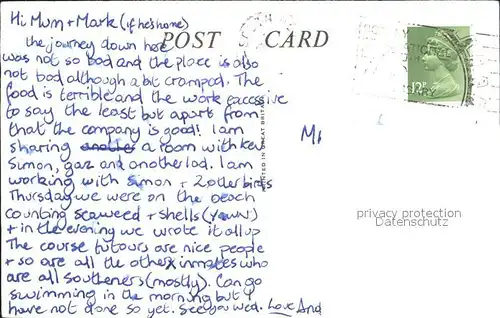 POST CARD
Hi Mum + Mark (if he's home)
the journey down here
was not so bad and the place is also
not bad although a bit cramped. The
food is terrible and the work excessive
to say the least but apart from
that the company is good! I am
sharing another a room with kev
Simon, gaz and another lad. I am
working with simon + 2 other birds
Thursday we were on the beach
counting seaweed + shells (yawn)
+ in the evening we wrote it all up
The course tutours are nice people
+ so are all the other inmates who
are all southeners (mostly). Can go
swimming in the morning but I
have not done so yet. See you wed. Love And
PRINTED IN GREAT BRITAIN
12P
privacy protection
Datenschutz